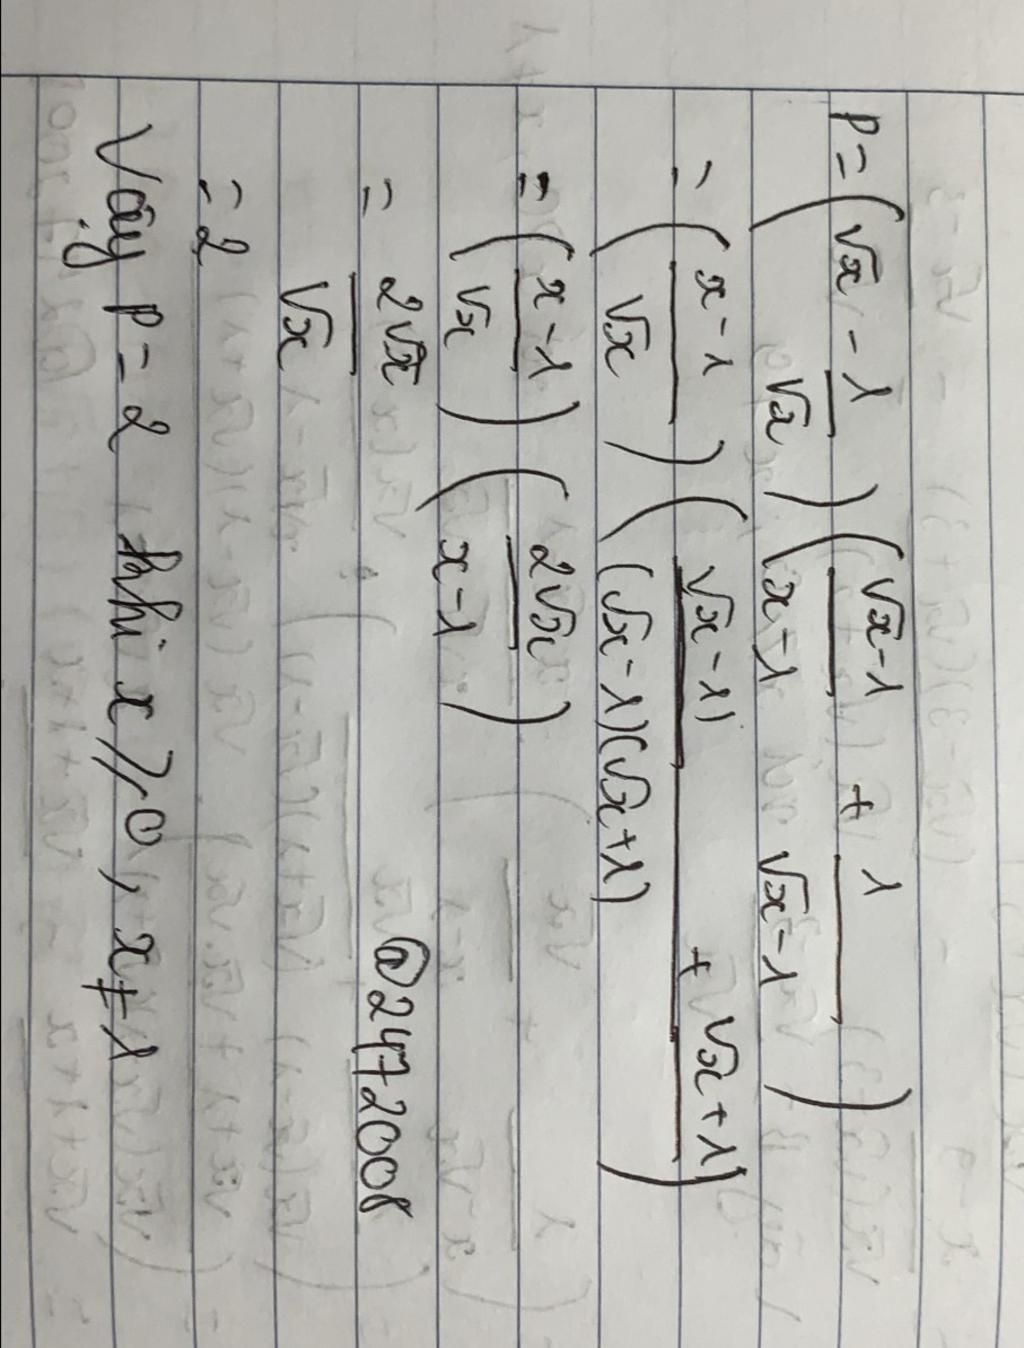 P = (√x - 1/√x) ((√x-1)/(x-1) + 1/(√x-1))
= ((x-1)/√x) ((√x-1) + √x+1)/((√x-1)(√x+1))
= ((x-1)/√x) (2√x/(x-1))
= 2√x/√x
@2472008
= 2
Vậy P = 2 khi x ⩾ 0, x ≠ 1